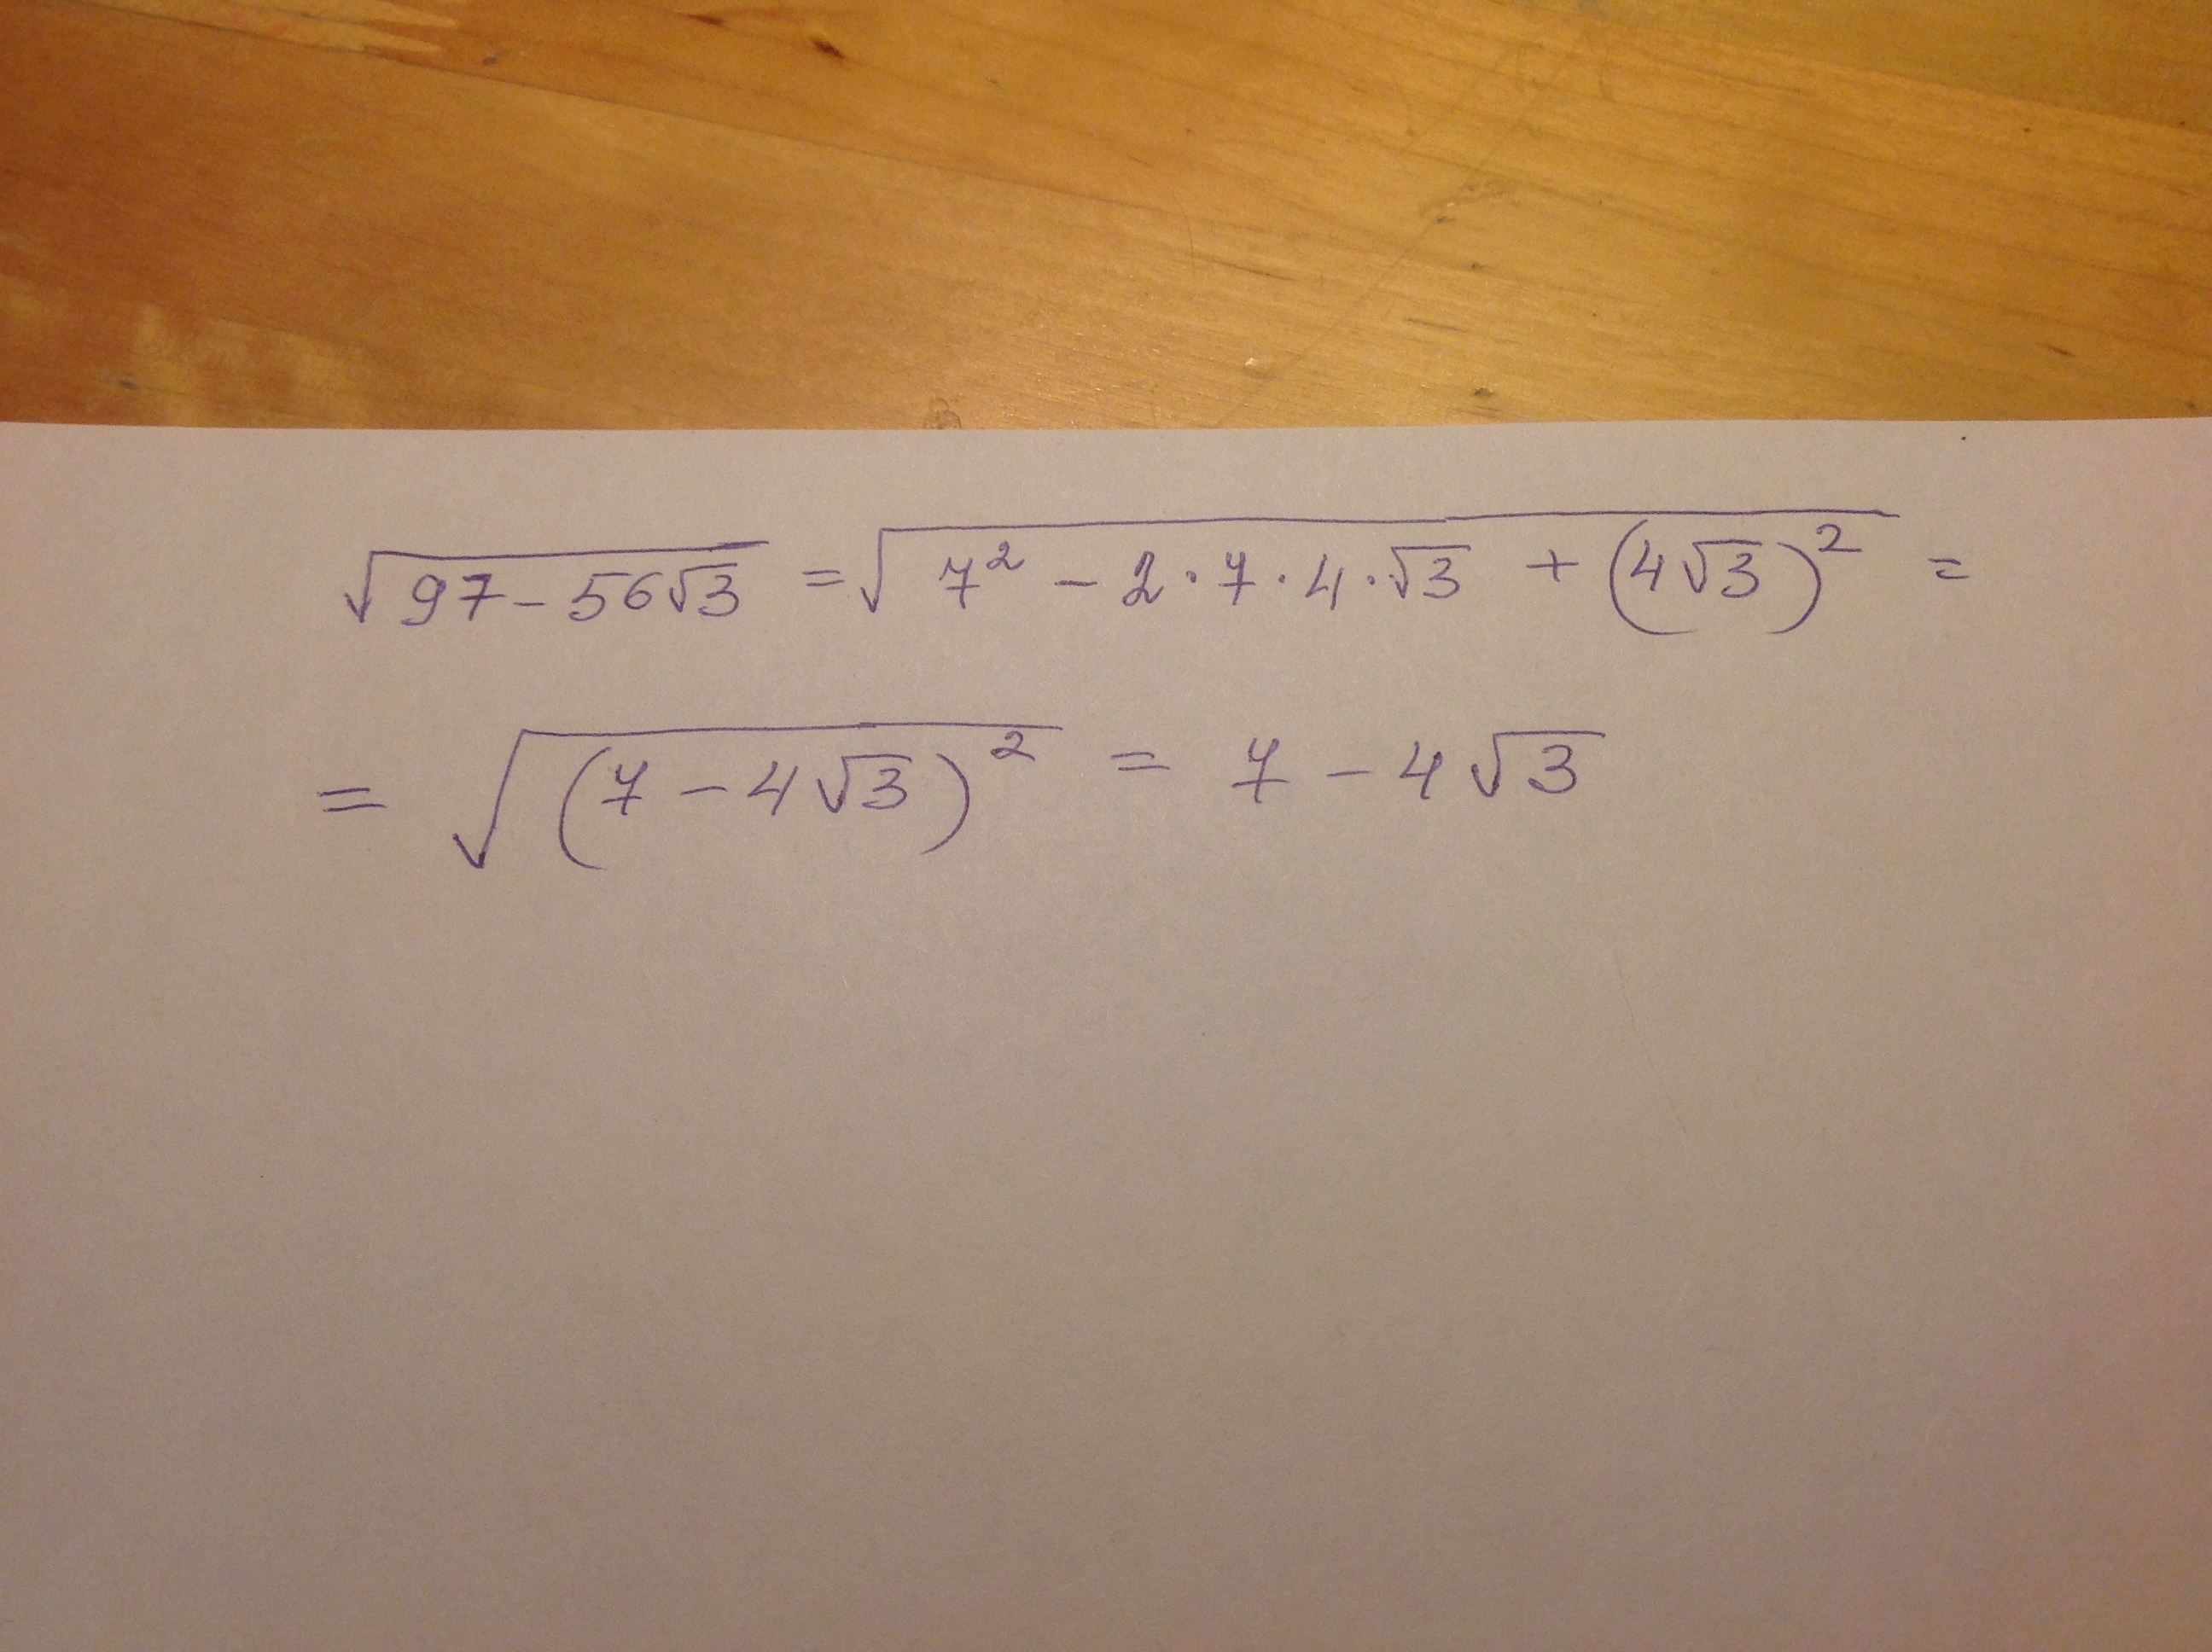 √97-56√3 = √7² - 2·7·4·√3 + (4√3)² =
= √(7-4√3)² = 7-4√3